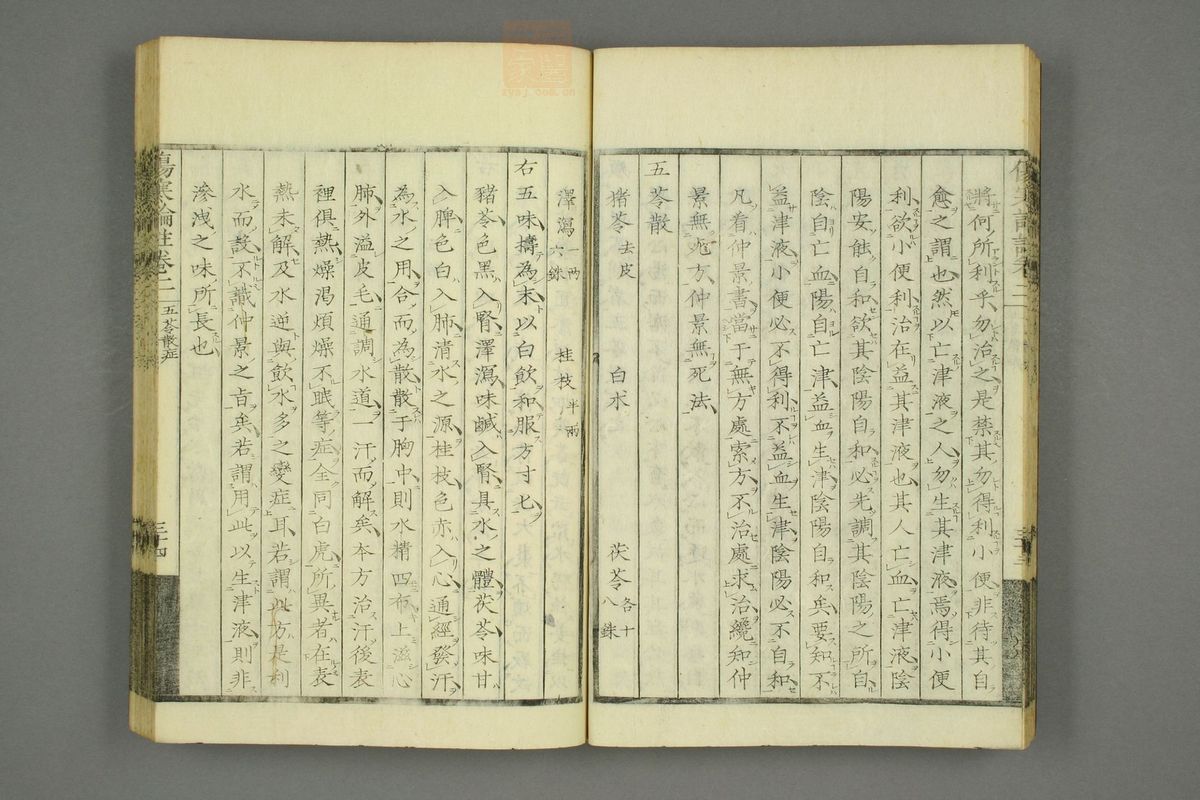 將何所利乎勿治之是禁其勿得利小便非待其自
愈之謂也然以亡津液之人勿生其津液焉得小便
利欲小便利治在益其津液也其人亡血亡津液陰
陽安能自和欲其陰陽自和必先調其陰陽之所自
陰自亡血陽自亡津益血生津陰陽自和矣要知不
益津液小便必不得利不益血生津陰陽必不自和
凡看仲景書當于無方處索方不治處求治纔知仲
景無死方仲景無死法
五苓散
猪苓去皮 白朮 茯苓各十八銖
澤瀉一兩六銖 桂枝半兩
右五味擣為末以白飲和服方寸匕
豬苓色黑入腎澤瀉味鹹入腎具水之體茯苓味甘
入脾色白入肺清水之源桂枝色赤入心通經發汗
為水之用合而為散散于胸中則水精四布上滋心
肺外溢皮毛通調水道一汗而解矣本方治汗後表
裡俱熱燥渴煩燥不眠等症全同白虎所異者在表
熱未解及水逆與飲水多之變症耳若謂此方是利
水而設不識仲景之旨矣若謂用此以生津液則非
滲洩之味所長也
傷寒論註卷二 五苓散症 三十四